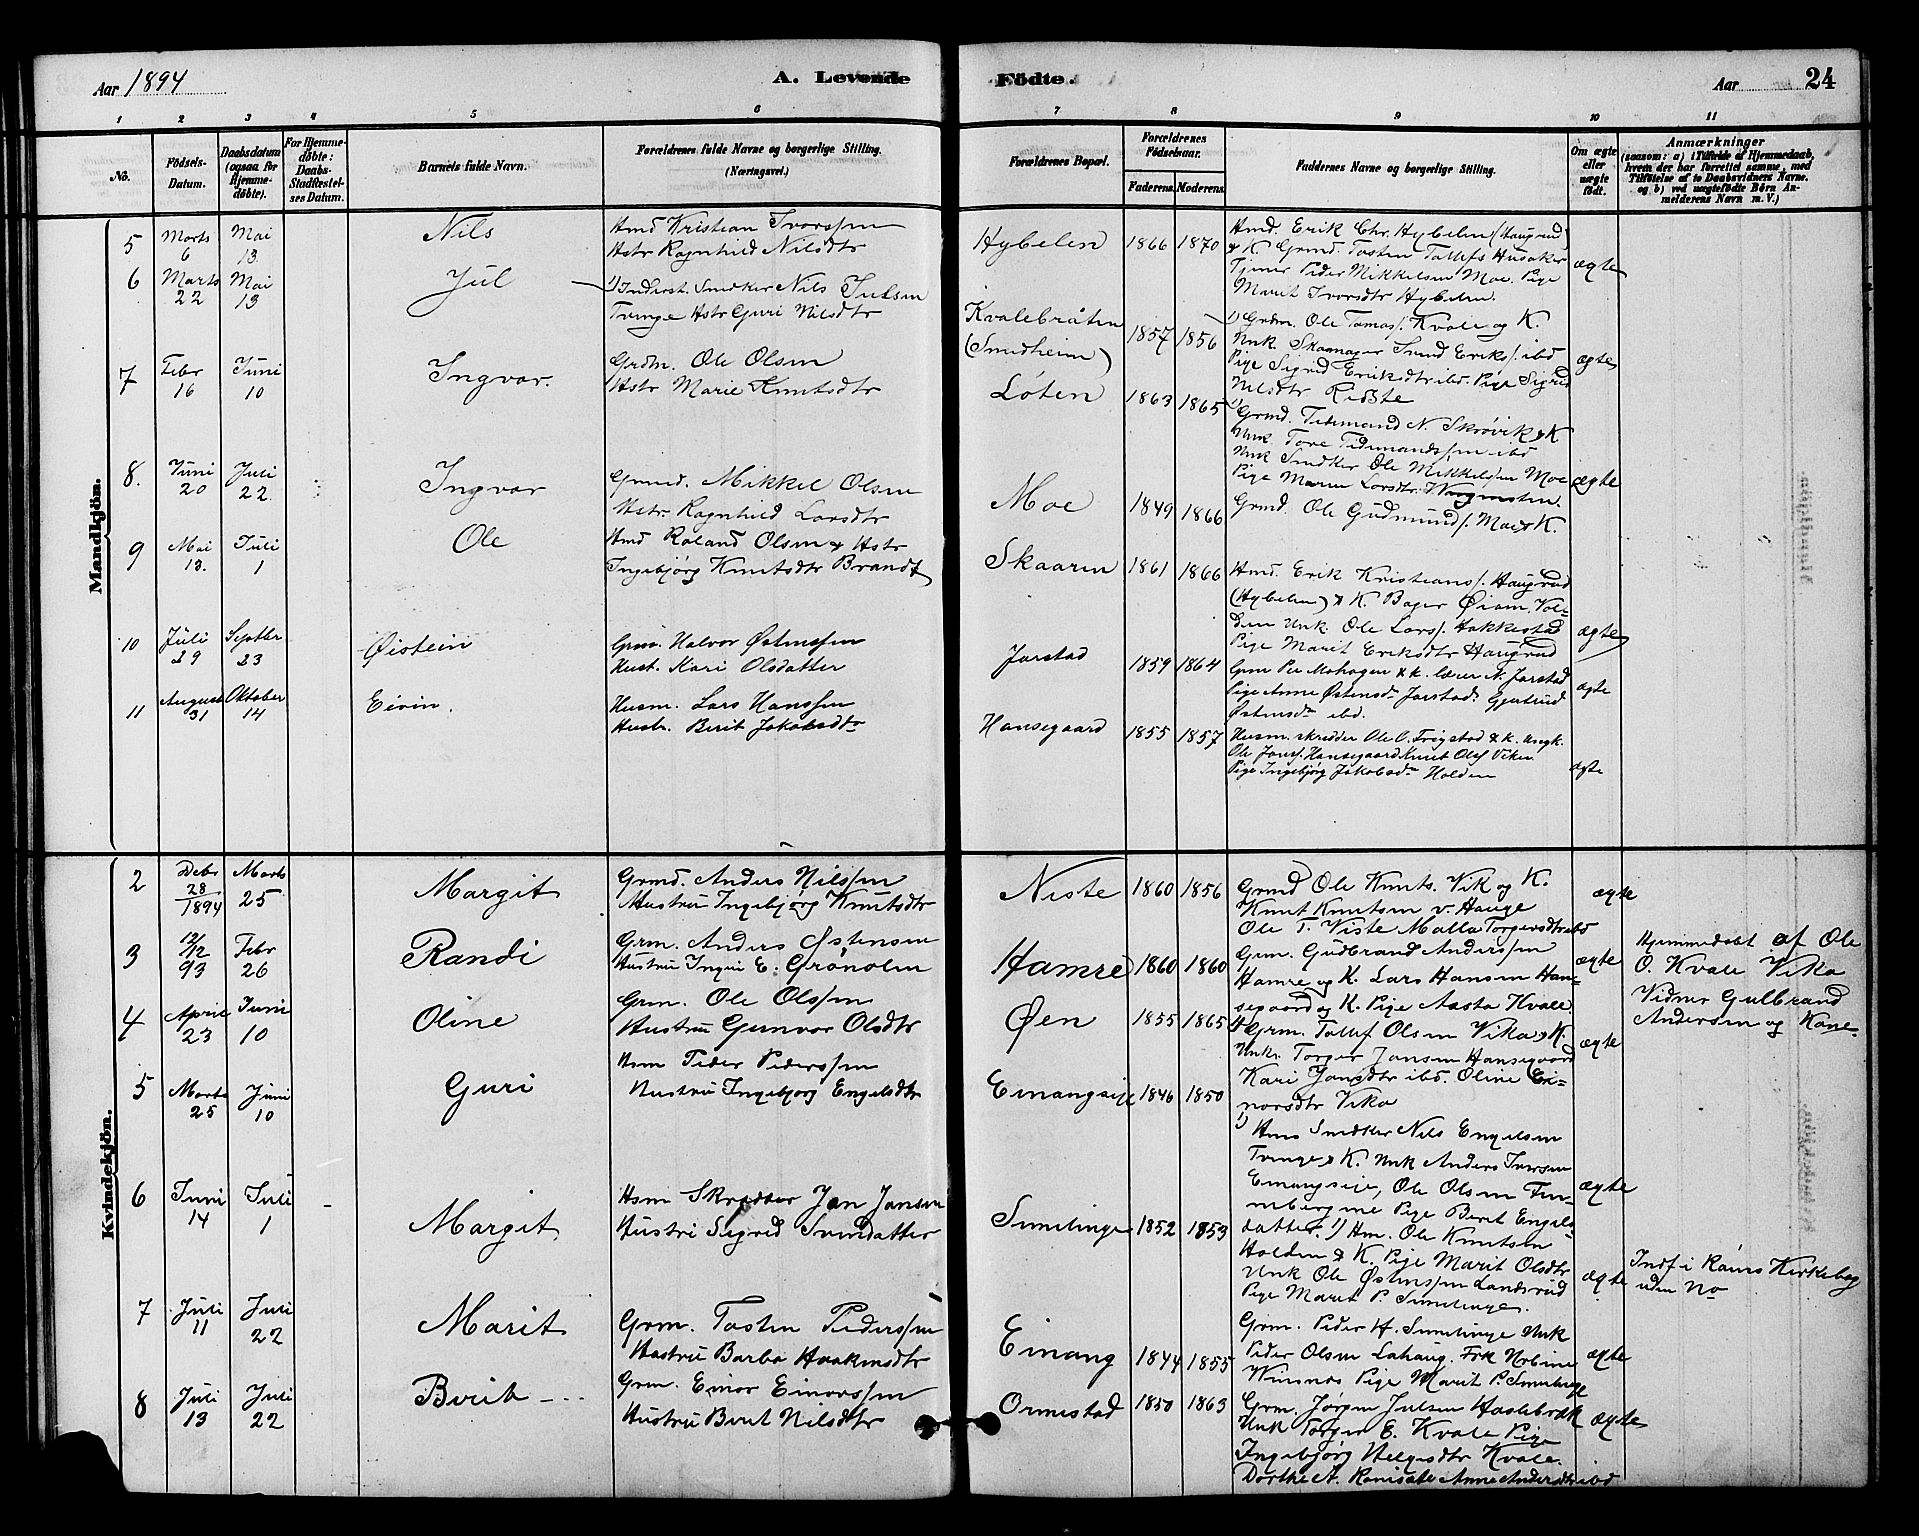 Aar 1894
A. Levende Födte.
Aar
24
1 2 3 4 5 6 7 8 9 10 11
No.
Födsels-Datum.
Daabsdatum (ogsaa for Hjemme-döbte).
For Hjemme-döbte: Daabs-Stadfæstel-ses Datum.
Barnets fulde Navn.
Forældrenes fulde Navne og borgerlige Stilling. (Næringsvei.)
Forældrenes Bopæl.
Forældrenes Födselsaar.
Faderens. Moderens.
Faddernes Navne og borgerlige Stilling.
Om ægte eller uægte födt.
Anmærkninger
(saasom: a) i Tilfælde af Hjemmedaab, hvem der har forrettet samme, med Tilföielse af to Daabsvidners Navne. og b) ved uægtefödte Börn An-melderens Navn m. V.)
Mandkjön.
5 Marts 6 Mai 13 Nils
Hmd Kristian Ivorssen
Hstr Ragnhild Nilsdtr
Hybelen 1866 1870
Hmd. Erik Chr. Hybelen (Haugrud)
& K. Grmd. Tosten Tollefs Husaker
Tjener Peder Mikkelsen Moe. Pige
Marit Ivorsdtr Hybelen.
ægte
6 Marts 22 Mai 13 Jul
1) Inderst. Snedker Nils Julsen
Tvinge Hstr Guri Nilsdtr
Kvalebråten
(Smedheim) 1857 1856
1) Grdm. Ole Tomas/. Kvale og K.
Unk. Skomager Svend Eriks/. ibd
Pige Sigrid Eriksdtr ibd. Pige Sigrid
Nilsdtr Ridste
ægte
7 Febr 16 Juni 10 Ingvar.
Grdm. Ole Olsen
Hstr Marie Knutsdtr
Løten 1863 1865
1) Grmd. Tidemand N. Skrøvik & K
Unk. Tore Tidemandssen ibd
Unk Snedker Ole Mikkelssen Moe
Pige Maren Larsdtr.
ægte
8. Juni 20 Juli 22 Ingvar
Grmd. Mikkel Olsen
Hstr. Ragnhild Larsdtr
Moe 1849 1866
Grmd. Ole Gudmund/. Moe & K.
9 Mai 13. Juli 1 Ole
Hmd Roland Olsen & Hstr
Ingebjørg Knutsdtr Brandt
Skaaren 1861 1866
Hmd. Erik Kristians/. Haugrud
(Hybelen) & K. Bager Øiom. Vol-
den Unk. Ole Lars/. Hakkestad
Pige Marit Eriksdtr Haugrud
ægte
10 Juli 29 Septbr 23 Øistein
Grm. Halvor Østenssen
Hust. Kari Olsdatter
Jarstad 1859 1864
Grm Per Mohagen & k. lærer N. Jarstad
Pige Anne Østensdr Jarstad. Gjertrud
Østensdr ibd.
ægte
11 August 31 Oktober 14 Eivin.
Husm. Lars Hanssen
Hustr. Berit Jakobsdtr
Hansegaard 1855 1857
Husm. skredder Ole O. Frøystad & k. Ungk.
Ole Jons/. Hansegaard Knut Olss Viken
Pige Ingebjørg Jakobsdr Holden
ægte
Kvindekjön.
2 Debr 28 1894 Marts 25 Margit
Grmd. Anders Nilssen
Hustru Ingebjørg Knutsdtr
Niste 1860 1856
Grmd Ole Knuts. Vik og K.
Knut Knutsen v. Hauge
Ole T. Viste Malla Torgersdtr ibd
ægte
3 12/2 93 Febr 26 Randi
Grm. Anders Østensen
Hustru Ingri E. Grønolen
Hamre 1860 1860
Grm. Gudbrand Anderssen
Hamre og K. Lars Hansen Han-
segaard og K. Pige Aasta Hvale
ægte
Hjemmedøbt af Ole
O. Kvale Vika
Vidner Gulbrand
Andersen og Kone.
4 April 23 Juni 10 Oline
Grm. Ole Olssen
Hustru Gunvor Olsdtr
Øen 1855 1865
1) Grm. Tollef Olsen Vika & K.
Unkr. Torger Jansen Hansegaard
Kari Jansdtr ibd. Oline Ei-
norsdtr Vika
ægte
5 Marts 25 Juni 10 Guri
Hsm Peder Pederssen
Hustru Ingebjørg Engelsdtr
Einangseie 1846 1850
1) Hmd Snedker Nils Engelsen
Tvinge & K. Unk Anders Iversen
Einangseie, Ole Olsen Fin-
nebergme Pige Berit Engels-
datter.
ægte
6 Juni 14 Juli 1 Margit
Hsm Skrædder Jan Jansen
Hustru Sigrid Svendatter
Semelinge 1852 1853
1) Hm. Ole Knutsen
Holden & K. Pige Marit Olsdtr
Unk Ole Østenssen Landsrud
Pige Marit P. Semelinge.
ægte
Indf i Røins Kirkebog
uden No
7 Juli 11 Juli 22 Marit
Grm. Tosten Pederssen
Hustru Barbo Haakensdtr
Einang 1844 1855
Grm. Peder H. Semelinge Unk
Peder Olsen Lahaug. Frk Nobine
Winsnes Pige Marit P. Semelinge
ægte
8 Juli 13 Juli 22 Berit
Grm. Einar Einarssen
Hustru Berit Nilsdtr
Ormestad 1850 1863
Grm. Jørgen Julsen Haslebrækk
Unk Torger E. Kvale Pige
Ingebjørg Helgesdtr Kvale.
Dorthe A. Anne Andersdtr ibd
ægte